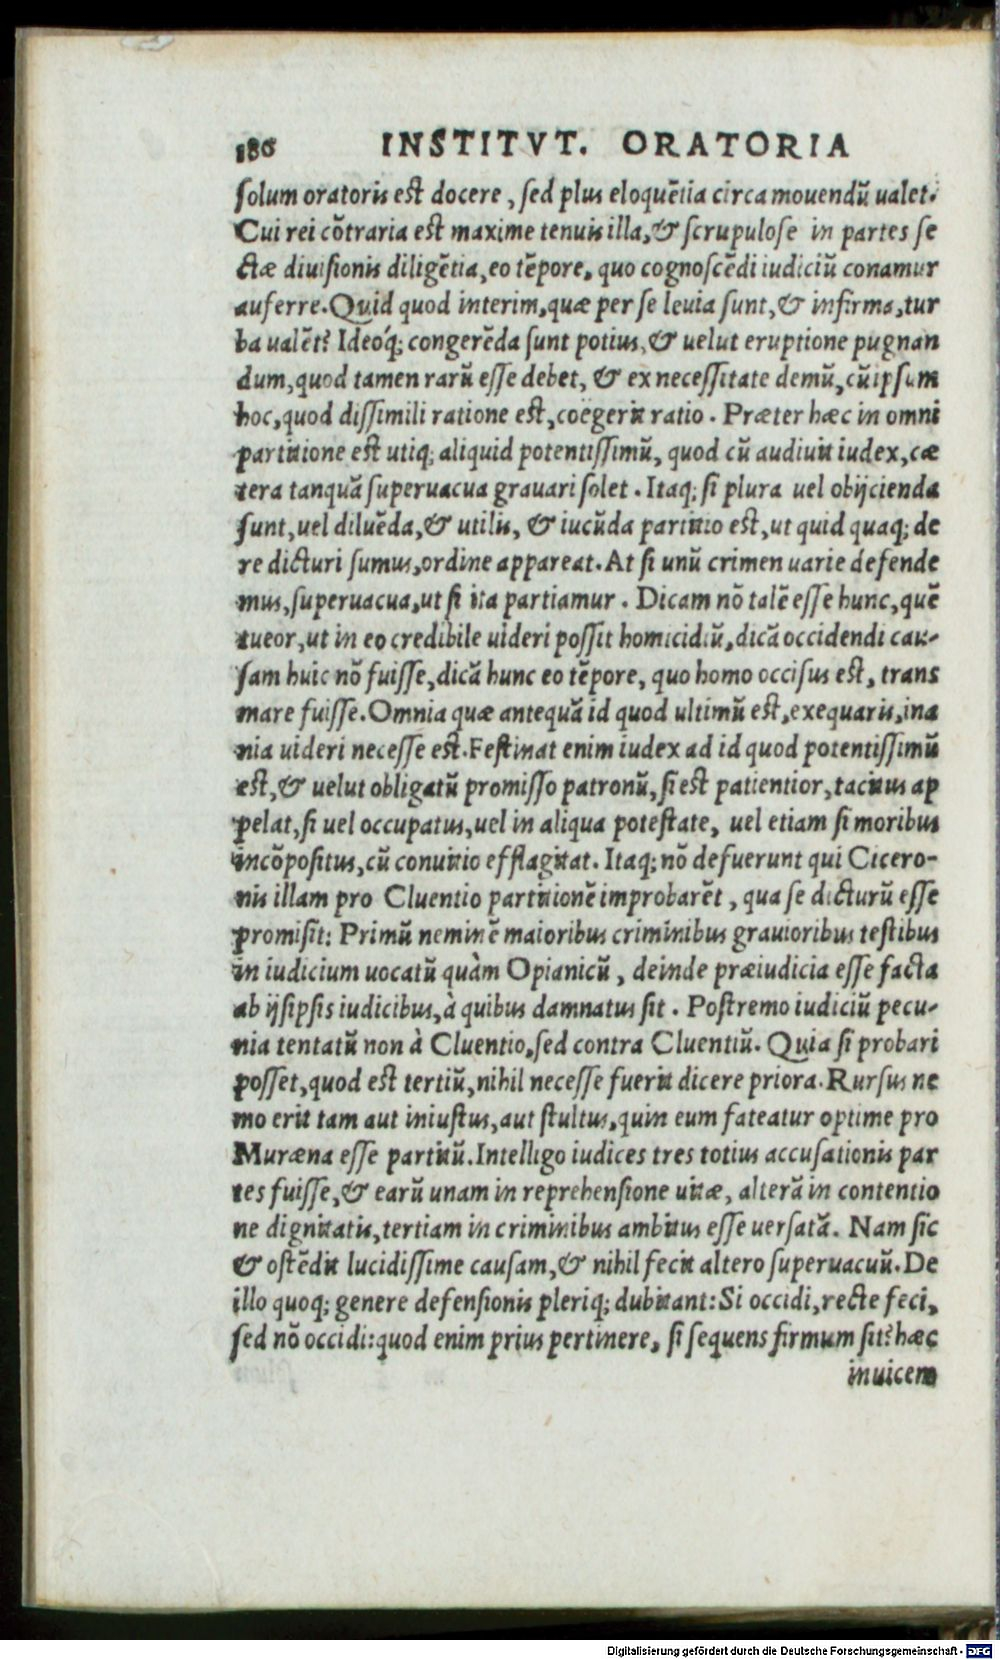 186 INSTITVT. ORATORIA
solum oratoris est docere, sed plus eloquẽtia circa mouendũ ualet.
Cui rei cõtraria est maxime tenuis illa, & scrupulose in partes se
ctæ diuisionis diligẽtia, eo tẽpore, quo cognoscẽdi iudiciũ conamur
auferre. Quid quod interim, quæ per se leuia sunt, & infirma, tur
ba ualẽt? Ideóq; congerẽda sunt potius, & uelut eruptione pugnan
dum, quod tamen rarũ esse debet, & ex necessitate demũ, cũ ipsum
hoc, quod dissimili ratione est, coëgerit ratio. Præter hæc in omni
partitione est utiq; aliquid potentissimũ, quod cũ audiuit iudex, cæ
tera tanquã superuacua grauari solet. Itaq; si plura uel obijcienda
sunt, uel diluẽda, & utilis, & iucũda partitio est, ut quid quaq; de
re dicturi sumus, ordine appareat. At si unũ crimen uarie defende
mus, superuacua, ut si ita partiamur. Dicam nõ talẽ esse hunc, quẽ
tueor, ut in eo credibile uideri possit homicidiũ, dicã occidendi cau-
sam huic nõ fuisse, dicã hunc eo tẽpore, quo homo occisus est, trans
mare fuisse. Omnia quæ antequã id quod ultimũ est, exequaris, ina
nia uideri necesse est. Festinat enim iudex ad id quod potentissimũ
est, & uelut obligatũ promisso patronũ, si est patientior, tacitus ap
pelat, si uel occupatus, uel in aliqua potestate, uel etiam si moribus
incõpositus, cũ conuitio efflagitat. Itaq; nõ defuerunt qui Cicero-
nis illam pro Cluentio partitionẽ improbarẽt, qua se dicturũ esse
promisit: Primũ neminẽ maioribus criminibus grauioribus testibus
in iudicium uocatũ quàm Opianicũ, deinde præiudicia esse facta
ab ijsipsis iudicibus, à quibus damnatus sit. Postremo iudiciũ pecu-
nia tentatũ non à Cluentio, sed contra Cluentiũ. Quia si probari
posset, quod est tertiũ, nihil necesse fuerit dicere priora. Rursus ne
mo erit tam aut iniustus, aut stultus, quin eum fateatur optime pro
Muræna esse partitũ. Intelligo iudices tres totius accusationis par
tes fuisse, & earũ unam in reprehensione uitæ, alterã in contentio
ne dignitatis, tertiam in criminibus ambitus esse uersatã. Nam sic
& ostẽdit lucidissime causam, & nihil fecit altero superuacuũ. De
illo quoq; genere defensionis pleriq; dubitant: Si occidi, recte feci,
sed nõ occidi: quod enim prius pertinere, si sequens firmum sit? hæc
inuicem
Digitalisierung gefördert durch die Deutsche Forschungsgemeinschaft - DFG